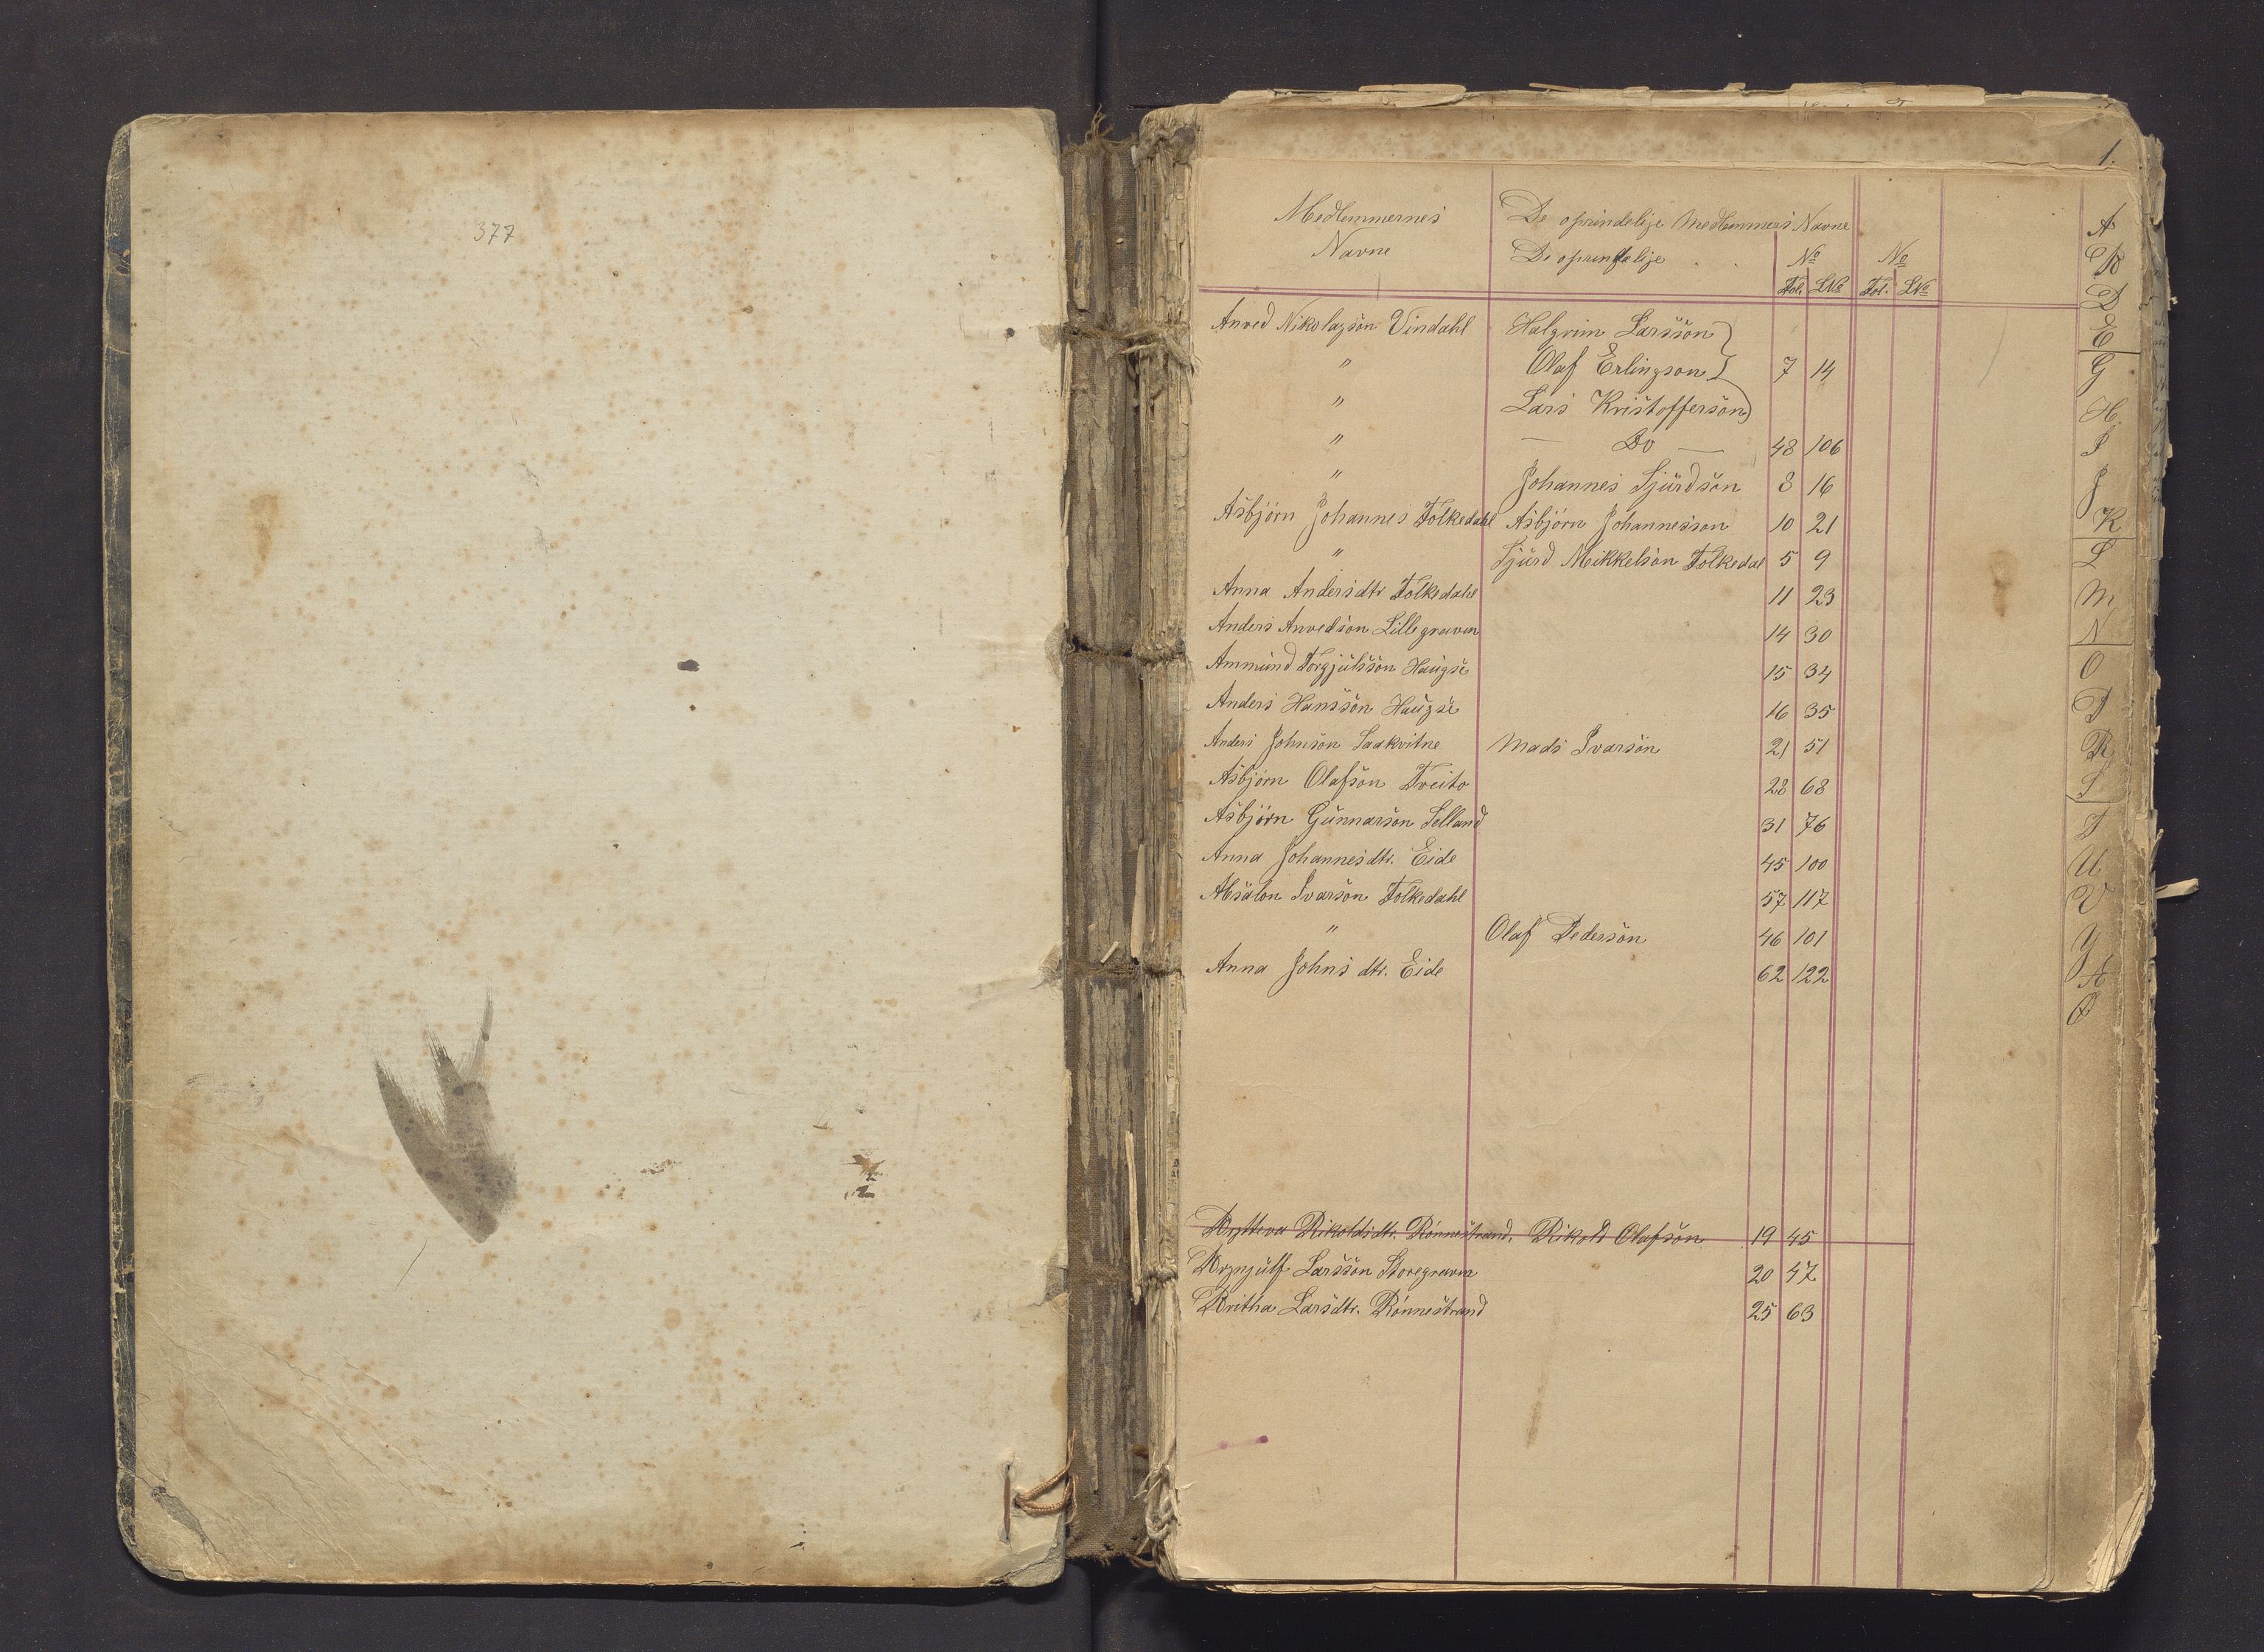 377
1.
Medlemmernes De oprindelige Medlemmers Navne
Navne De oprindelige No No
Fol. LNo Fol. LNo
Anved Nikolayson Vindahl Halgrim Larsson
" Olaf Erlingson 7 14
" Lars Kristofferson
" — Do — 48 106
" Johannes Sjurdson 8 16
Asbjörn Johannes Folkedahl Asbjörn Johannesson 10 21
" Sjurd Mikkelson Folkedal 5 9
Anna Andersdtr Folkedahl 11 23
Anders Anvedson Lillegraven 14 30
Ammund Torgjulsson Haugse 15 34
Anders Hansson Haugse 16 35
Anders Johnson Saakvitne Mads Ivarson 21 51
Asbjörn Olafson Tveito 28 68
Asbjörn Gunnarson Selland 31 76
Anna Johannesdtr. Eide 45 100
Absalon Ivarson Folkedahl 57 117
" Olaf Pederson 46 101
Anna Johns dtr. Eide 62 122
Rikoldsdtr. Rönnestrand, Rikold Olafson 19 45
Brynjulf Larsson Storegraven 20 47
Britha Larsdtr. Rönnestrand 25 63
A
B
D
E
G
H
I
J
K
L
M
N
O
P
R
S
T
U
V
Y
Æ
Ø